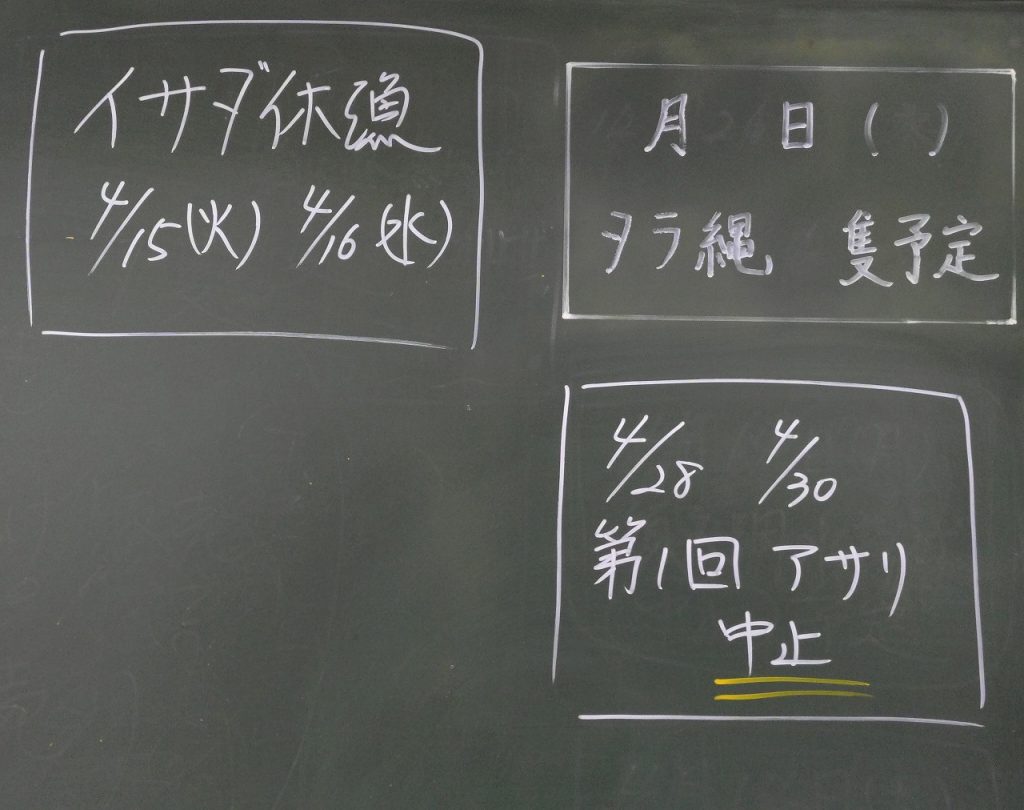 イサダ休漁
4/15(火) 4/16(水)
月 日 ( )
タラ縄 隻予定
4/28 4/30
第1回 アサリ
中止